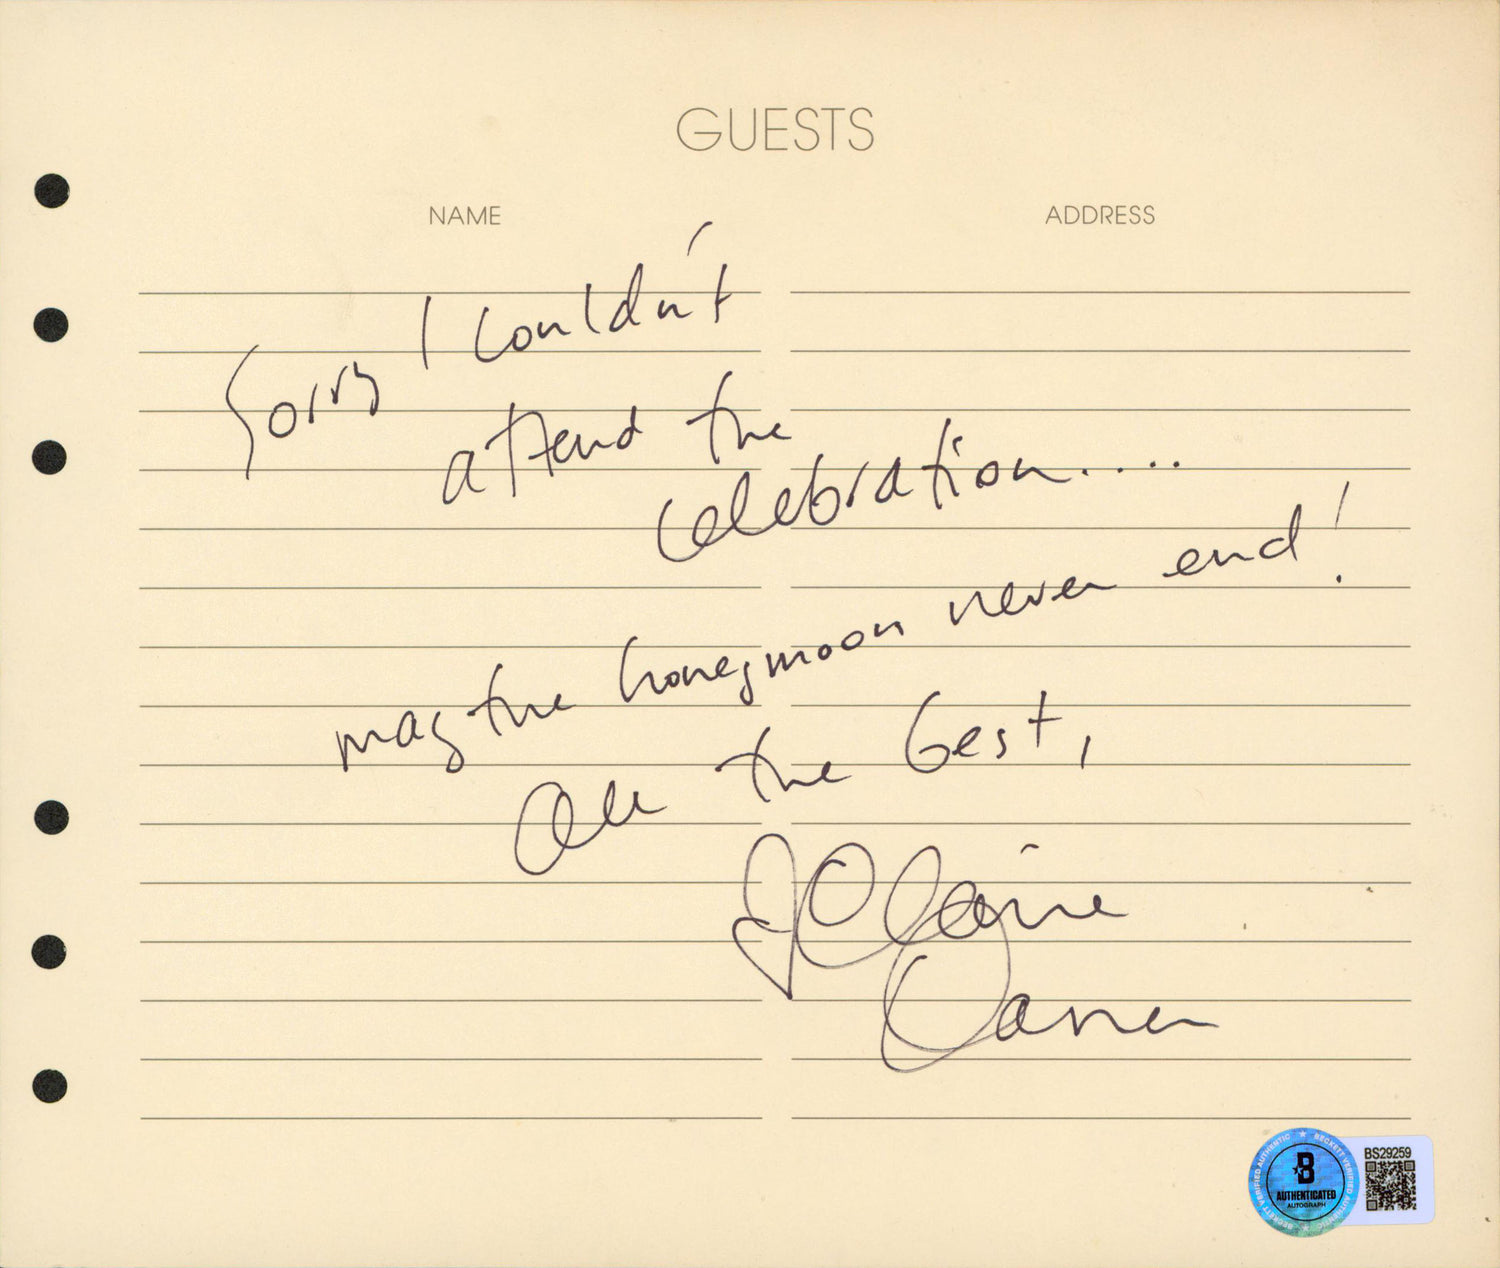 GUESTS
NAME ADDRESS
Sorry I couldn't
attend the
celebration....
may the honeymoon never end!
All the best,
JC Claire
BS29259
BECKETT VERIFIED AUTHENTIC
B
AUTHENTICATED
AUTOGRAPH
BECKETT VERIFIED AUTHENTIC